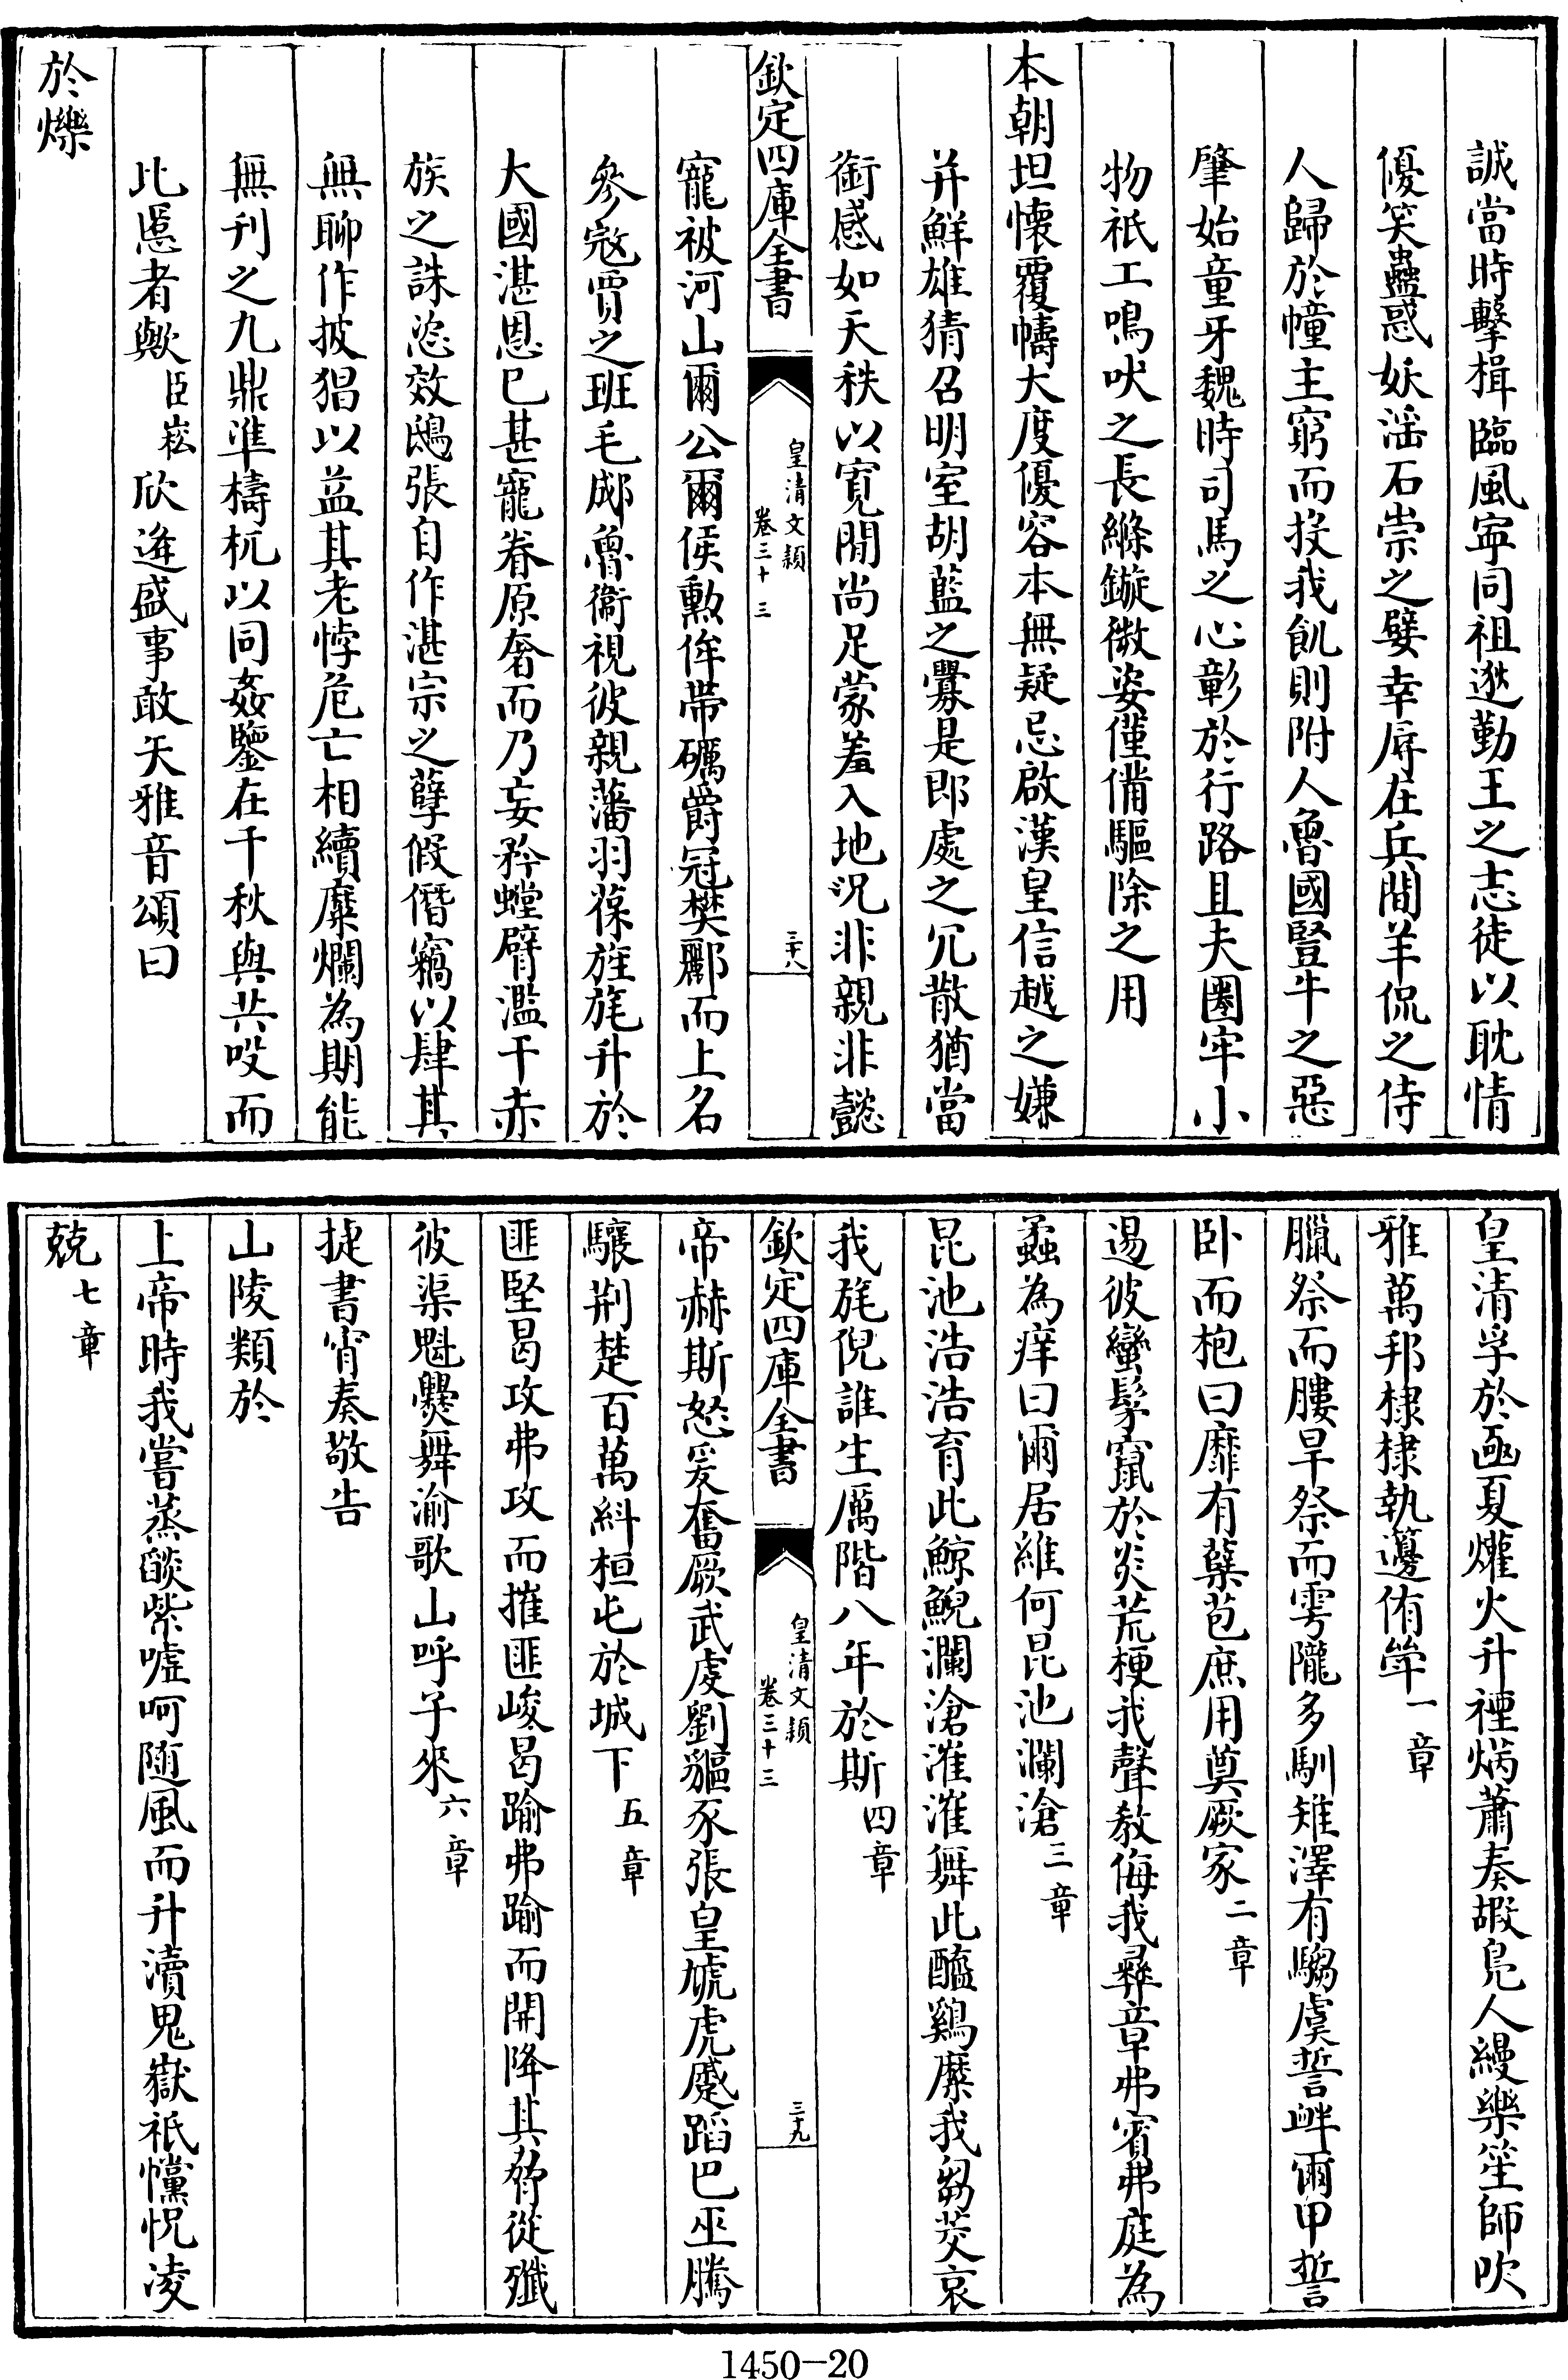 誠當時擊楫臨風寧同祖逖勤王之志徒以耽情
優笑蠱惑妖滛石崇之嬖幸辱在兵間羊侃之侍
人歸於幢主窮而投我飢則附人魯國豎牛之惡
肇始童牙魏時司馬之心彰於行路且夫圏牢小
物祇工鳴吠之長絛鏇微姿僅備驅除之用
本朝坦懷覆幬大度優容本無疑忌啟漢皇信越之嫌
并鮮雄猜召明室胡藍之釁是即處之冗散猶當
銜感如天秩以寛閒尚足蒙羞入地況非親非懿
欽定四庫全書
皇清文穎
卷三十三
三十八
寵被河山爾公爾侯勲侔帶礪爵冠樊酈而上名
參寇賈之班毛郕魯衞視彼親藩羽葆旌旄升於
大國湛恩已甚寵眷原奢而乃妄矜螳臂濫干赤
族之誅恣效鴟張自作湛宗之孽假僭竊以肆其
無聊作披猖以益其老悖危亡相續糜爛為期能
無刋之九鼎準檮杌以同姦鑒在千秋與共吺而
比慝者歟臣崧欣逢盛事敢矢雅音頌曰
於爍
皇清孚於函夏爟火升禋焫蕭奏嘏鳬人縵樂笙師吹
雅萬邦棣棣執籩侑斝一章
臘祭而膢旱祭而雩隴多馴雉澤有騶虞誓衅爾甲誓
卧而枹曰靡有蘖苞庶用奠厥家二章
逷彼蠻髳竄於炎荒梗我聲教侮我彛章弗賓弗庭為
蟊為痒曰爾居維何昆池瀾滄三章
昆池浩浩育此鯨鯢瀾滄漼漼舞此醯鷄糜我芻茭哀
我旄倪誰生厲階八年於斯四章
欽定四庫全書
皇清文穎
卷三十三
三十九
帝赫斯怒爰奮厥武虔劉貙豕張皇虓虎蹙蹈巴巫騰
驤荆楚百萬糾桓屯於城下五章
匪堅曷攻弗攻而摧匪峻曷踰弗踰而開降其脅從殲
彼渠魁爨舞渝歌山呼子來六章
捷書宵奏敬告
山陵類於
上帝時我嘗蒸燄紫噓呵随風而升瀆鬼嶽祇戃怳凌
兢七章
1450-20